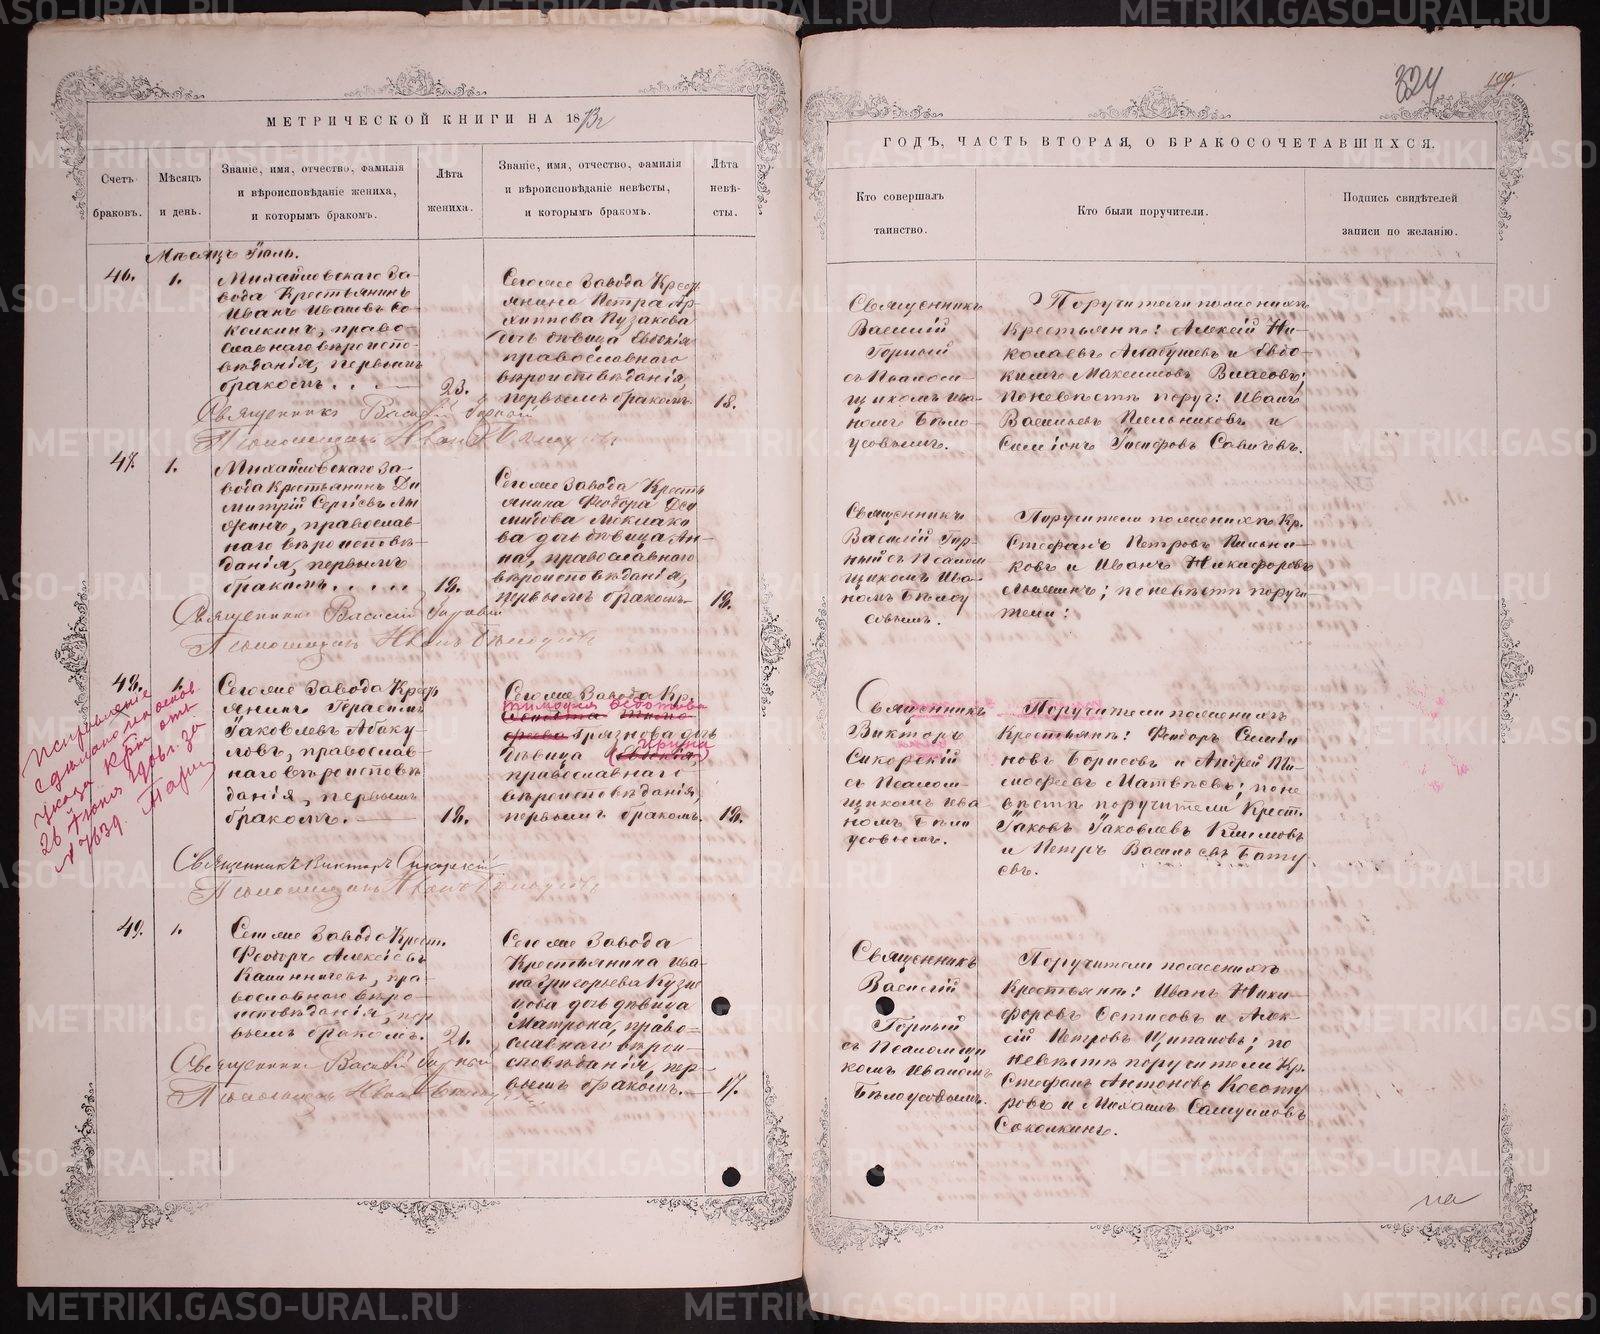 МЕТРИЧЕСКОЙ КНИГИ НА 1873г
Счетъ браковъ.
Мѣсяцъ и день.
Званіе, имя, отчество, фамилія
и вѣроисповѣданіе жениха,
и которымъ бракомъ.
Лѣта жениха.
Званіе, имя, отчество, фамилія
и вѣроисповѣданіе невѣсты,
и которымъ бракомъ.
Лѣта невѣ-
сты.
Мѣсяцъ Іюль.
46.
1.
Михайловскаго За-
вода Крестьянинъ
Иванъ Ивановъ Со-
колкинъ, право-
славнаго вѣроиспо-
вѣданія, первымъ
бракомъ.
23.
Сегоже Завода Крест
янина Петра Ар-
хиппова Пузакова
дочь дѣвица Евдокія
православнаго
вѣроисповѣданія,
первымъ бракомъ.
18.
Священникъ Василій Горной
Псаломщикъ Иванъ Бѣлоусовъ
47.
1.
Михайловскаго За-
вода Крестьянинъ Ди
митрій Сергіевъ
православ-
наго вѣроисповѣ-
данія, первымъ
бракомъ.
18.
Сегоже Завода Кресть
янина Феодора
дочь дѣвица Ан-
на, православнаго
вѣроисповѣданія,
первымъ бракомъ.
18.
Священникъ Василій Горной
Псаломщикъ Иванъ Бѣлоусовъ
48.
1.
Сегоже Завода Крест
янинъ Герасимъ
Іаковлевъ Абаку
мовъ, православ-
наго вѣроисповѣ
данія, первымъ
бракомъ.
18.
Сегоже Завода Кр.
Тимофея Федотова
Грязнова дочь
дѣвица (Ирина)
православнаго
вѣроисповѣданія,
первымъ бракомъ.
18.
Исправленіе
сдѣлано на основ
указа
26 Іюня
№ 7639.
Священникъ Викторъ Сикорскій
Псаломщикъ Иванъ Бѣлоусовъ
49.
1.
Сегоже Завода Крест.
Феодоръ Алексіевъ
пра-
вославнаго вѣро-
исповѣданія, пер
вымъ бракомъ.
21.
Сегоже Завода
Крестьянина Ива
на Григорьева Кузне
цова дочь дѣвица
Матрона, право-
славнаго вѣрои-
сповѣданія, пер-
вымъ бракомъ.
17.
Священникъ Василій Горной
Псаломщикъ Иванъ Бѣлоусовъ
324
199.
ГОДЪ, ЧАСТЬ ВТОРАЯ, О БРАКОСОЧЕТАВШИХСЯ.
Кто совершалъ
таинство.
Кто были поручители.
Подпись свидѣтелей
записи по желанію.
Священникъ
Василій
Горный
съ Псалом-
щикомъ Ива-
номъ Бѣло-
усовымъ.
Поручители по женихѣ
Крестьяне: Алексій Ни-
колаевъ Алабушевъ и Евдо-
кимъ Максимовъ Власовъ;
По невѣстѣ поруч: Иванъ
Васильевъ Пильниковъ и
Симеонъ Савичевъ.
Священникъ
Василій Гор-
ный съ Псалом
щикомъ Ива-
номъ Бѣлоу
совымъ.
Поручители по женихѣ Кр.
Стефанъ Петровъ Пильни-
ковъ и Иванъ Никифоровъ
по невѣстѣ поручи-
тели:
Священникъ
Викторъ
Сикорскій
съ Псалом-
щикомъ Ива
номъ Бѣло
усовымъ.
Поручители по женихѣ
Крестьяне: Феодоръ Симео
новъ Борисовъ и Андрей Ти-
мофеевъ Матвѣевъ; по не
вѣстѣ поручители Крест.
Іаковъ Іаковлевъ Климовъ
и Петръ Васильевъ Бату
евъ.
Священникъ
Василій
Горный
съ Псаломщи
комъ Иваномъ
Бѣлоусовымъ.
Поручители по женихѣ
Крестьяне: Иванъ Ники-
форовъ и Алек-
сій Петровъ Щипановъ; по
невѣстѣ поручители Кр.
Стефанъ Антоновъ Косоту
ровъ и Михаилъ Самуиловъ
Соколкинъ.
METRIKI.GASO-URAL.RU